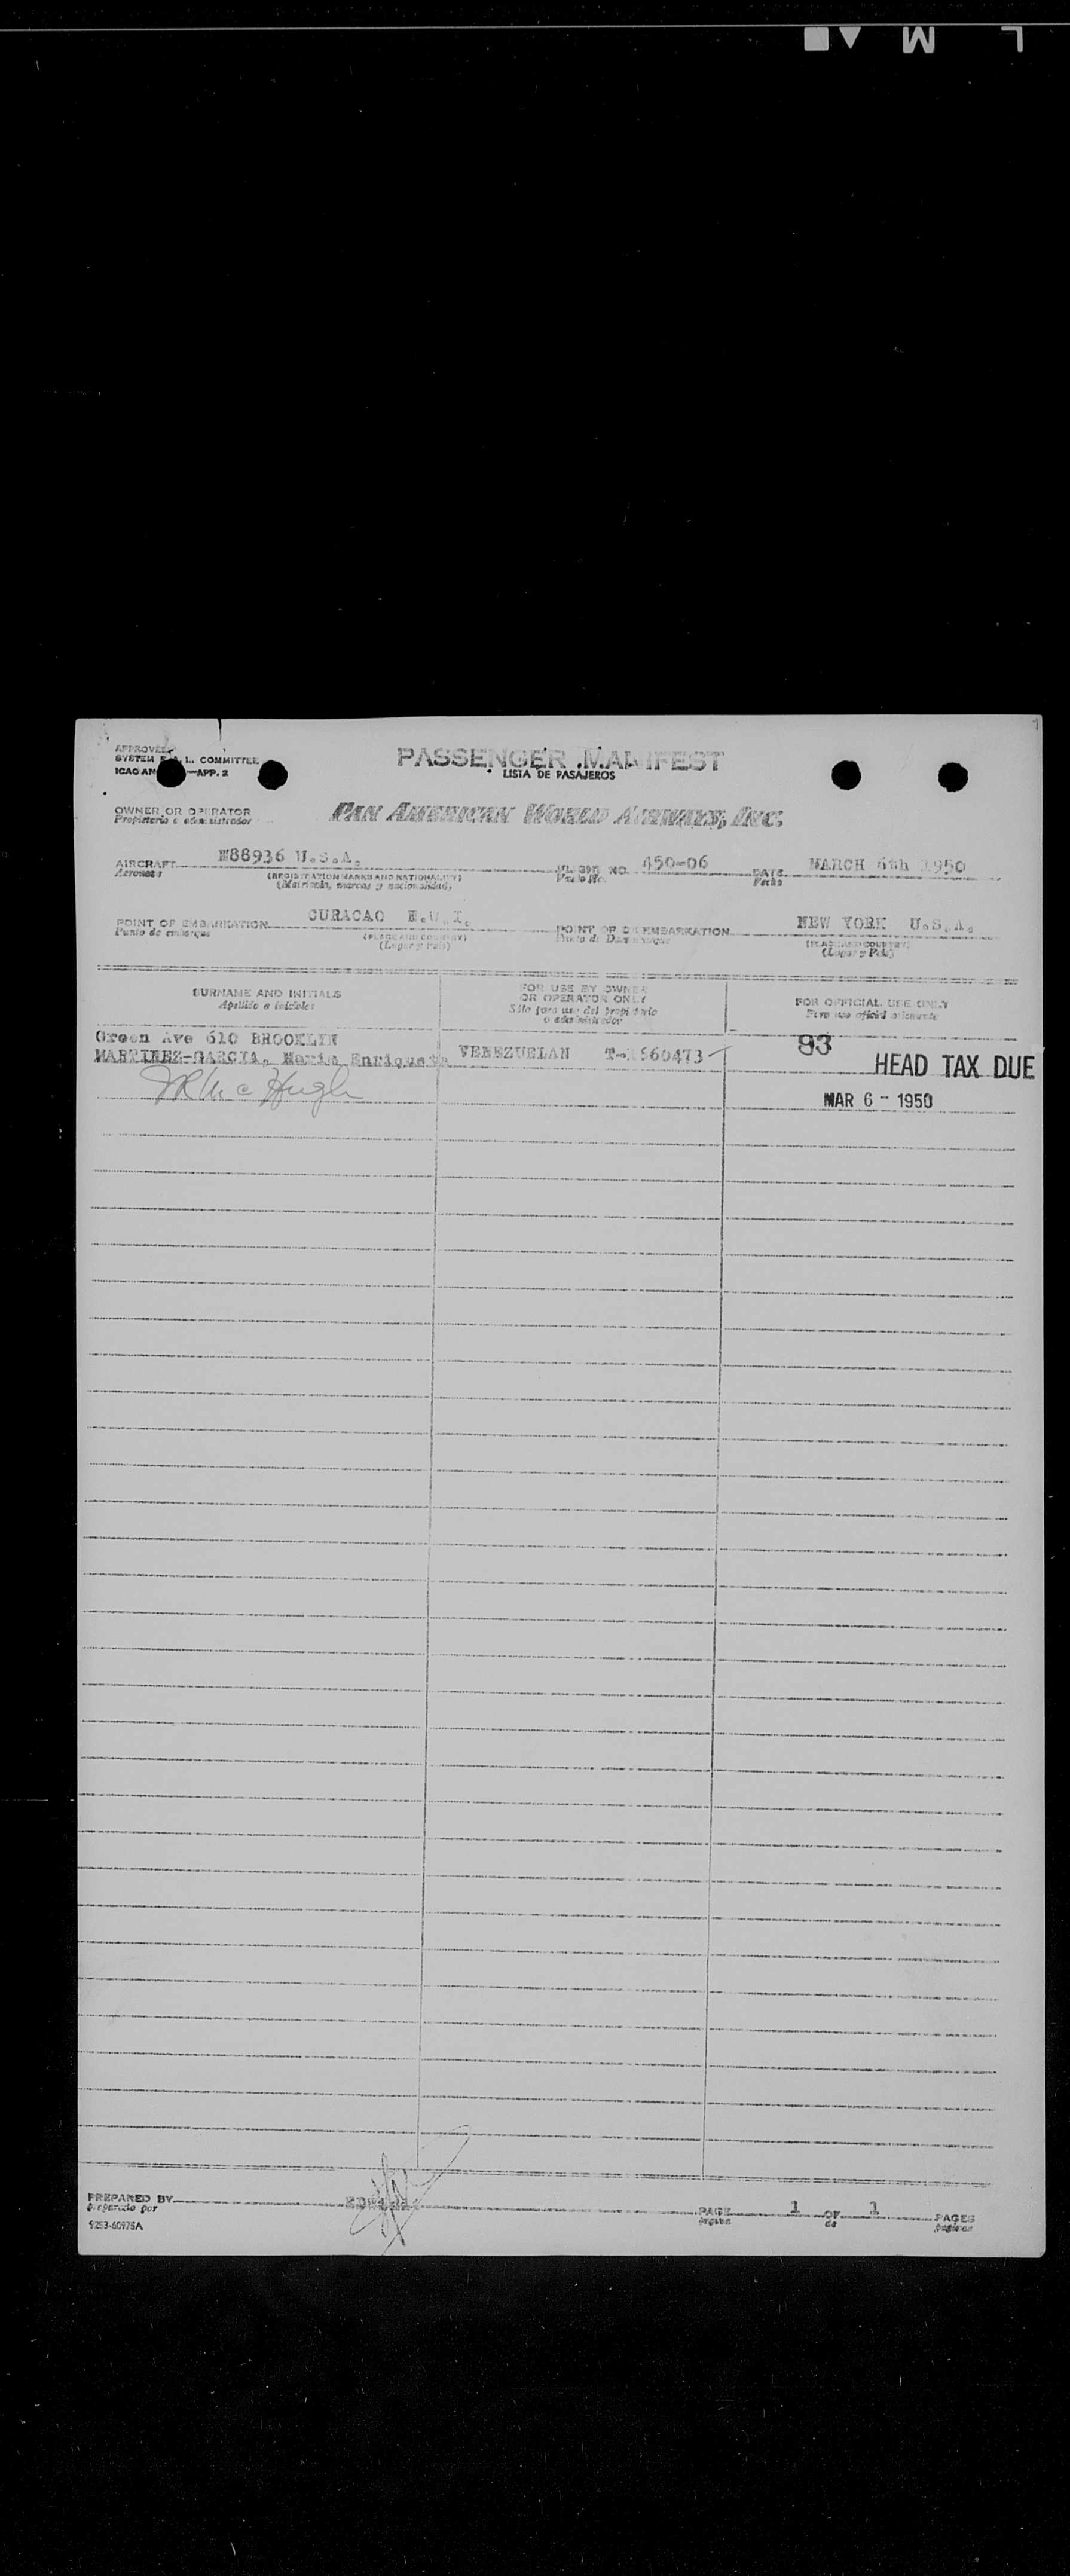 L M
APPROVED
SYSTEM F.A.L. COMMITTEE
ICAO AN APP. 2
PASSENGER MANIFEST
LISTA DE PASAJEROS
OWNER OR OPERATOR
Propietario o administrador
PAN AMERICAN WORLD AIRWAYS, INC.
AIRCRAFT N88936 U.S.A.
Aeronave
(REGISTRATION MARKS AND NATIONALITY)
(Matricula, marcas y nacionalidad)
FLIGHT NO. 450-06
Vuelo No.
DATE MARCH 6th 1950
Fecha
POINT OF EMBARKATION CURACAO N.W.I.
Punto de embarque
(PLACE AND COUNTRY)
(Lugar y País)
POINT OF DISEMBARKATION NEW YORK U.S.A.
Punto de Desembarque
(PLACE AND COUNTRY)
(Lugar y País)
SURNAME AND INITIALS
Apellido e iniciales
FOR USE BY OWNER
OR OPERATOR ONLY
Sólo para uso del propietario
o administrador
FOR OFFICIAL USE ONLY
Para uso oficial solamente
Green Ave 610 BROOKLYN
MARTINEZ-GARCIA, Maria Enriqueta VENEZUELAN 93 HEAD TAX DUE
JR McHugh
MAR 6 - 1950
PREPARED BY
preparado por
PAGE 1 OF 1 PAGES
página de páginas
9253-60975A